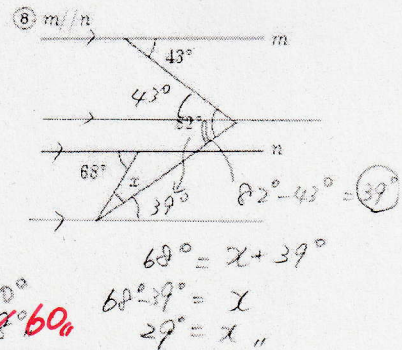 ⑧ m//n
m
43°
43°
82°
n
68°
x
39°
82°-43° = 39°
68° = x + 39°
68°-39° = x
29° = x 〃
0°
8°
60〃